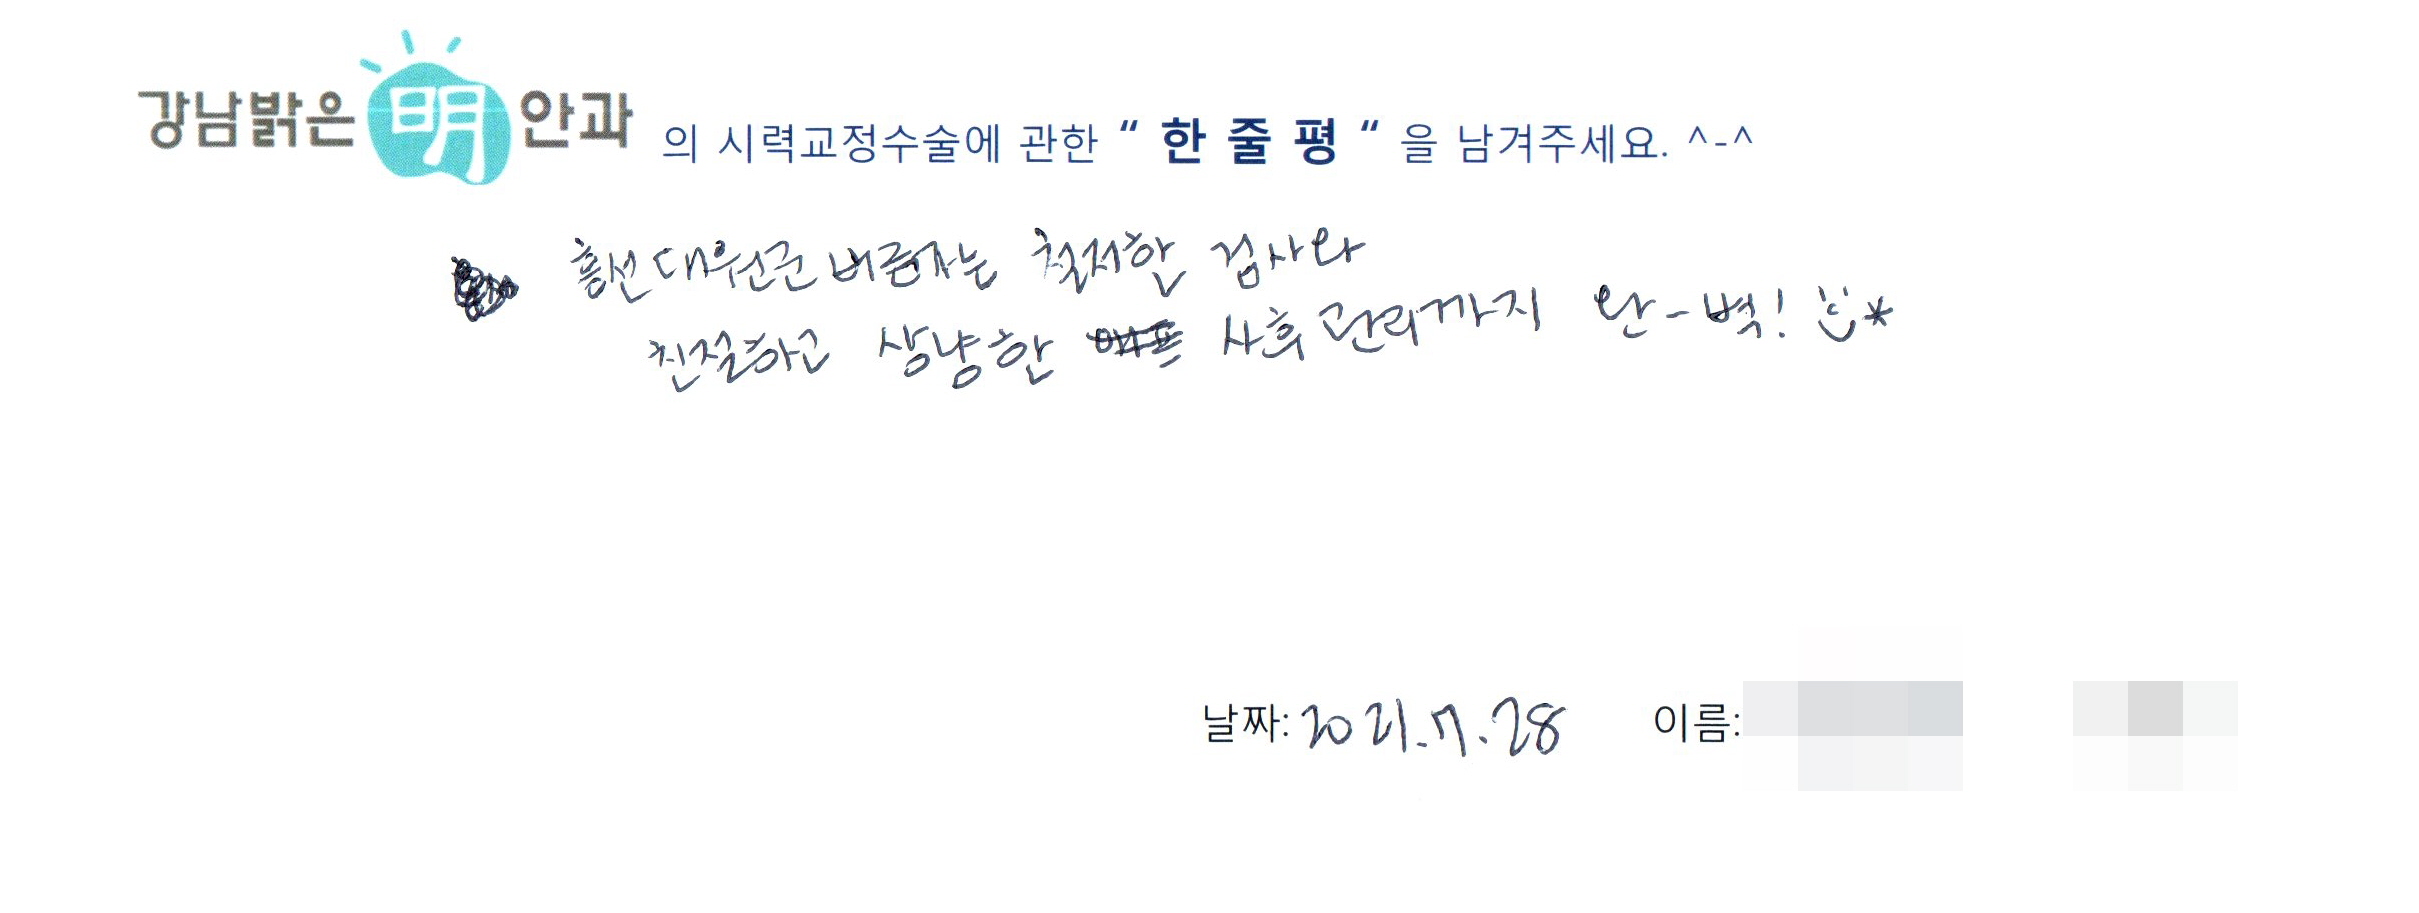 강남밝은 明 안과 의 시력교정수술에 관한 “ 한 줄 평 “ 을 남겨주세요. ^-^
흥선대원군 버금가는 철저한 검사와
친절하고 상냥한 사후관리까지 완-벽!
날짜: 2021.7.28 이름: